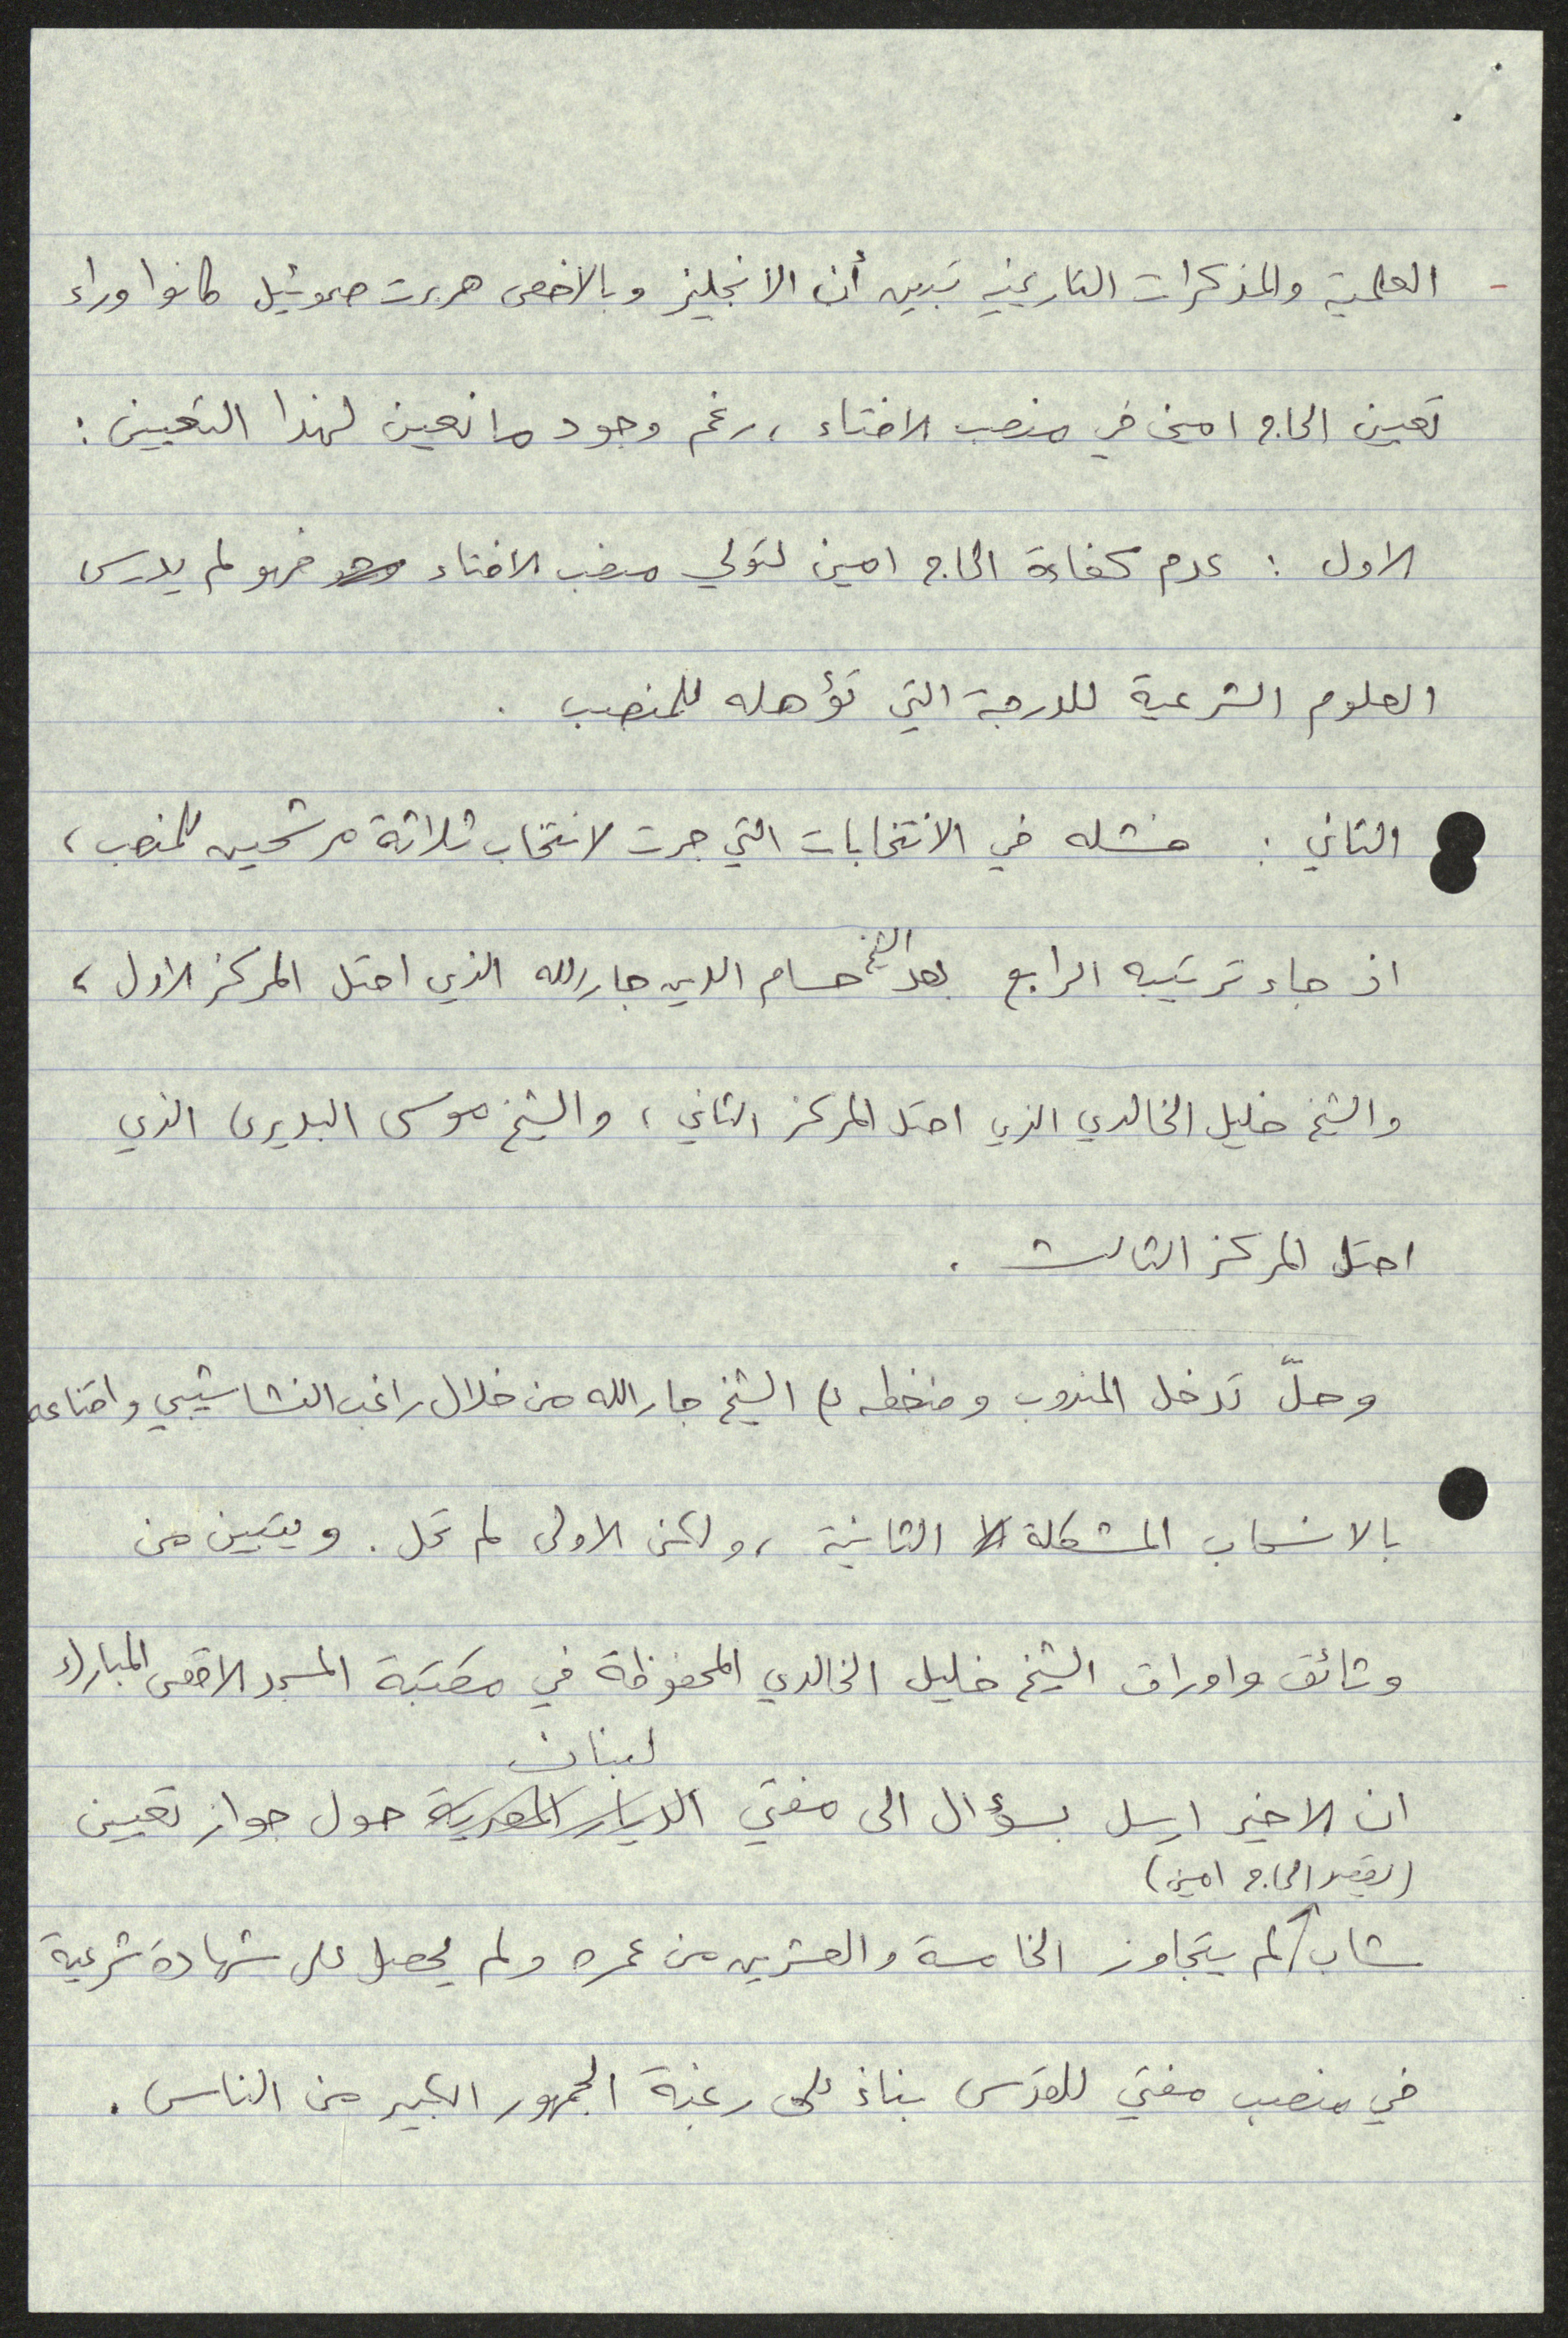 - العلمية والمذكرات التاريخية تبين أن الانجليز وبالاخص هربرت صموئيل كانوا وراء
تعين الحاج امين في منصب الافتاء ، رغم وجود مانعين لهذا التعيين :
الاول : عدم كفاءة الحاج امين لتولي منصب الافتاء فهو لم يدرس
العلوم الشرعية للدرجة التي تؤهله للمنصب .
الثاني : فشله في الانتخابات التي جرت لانتخاب ثلاثة مرشحين للمنصب ،
اذ جاء ترتيبه الرابع بعد الشيخ حسام الدين جارالله الذي احتل المركز الاول ،
والشيخ خليل الخالدي الذي احتل المركز الثاني ، والشيخ موسى البديري الذي
احتل المركز الثالث .
وحلّ تدخل المندوب وضغطه على الشيخ جار الله من خلال راغب النشاشيبي واقناعه
بالانسحاب المشكلة الثانية ، ولكن الاولى لم تحل . ويتبين من
وثائق واوراق الشيخ خليل الخالدي المحفوظة في مكتبة المسجد الاقصى المبارك
لبنان
ان الاخير ارسل بسؤال الى مفتي الديار المصرية حول جواز تعيين
(يقصد الحاج امين)
شاب لم يتجاوز الخامسة والعشرين من عمره ولم يحصل على شهادة شرعية
في منصب مفتي للقدس بناءً على رغبة الجمهور الكبير من الناس .